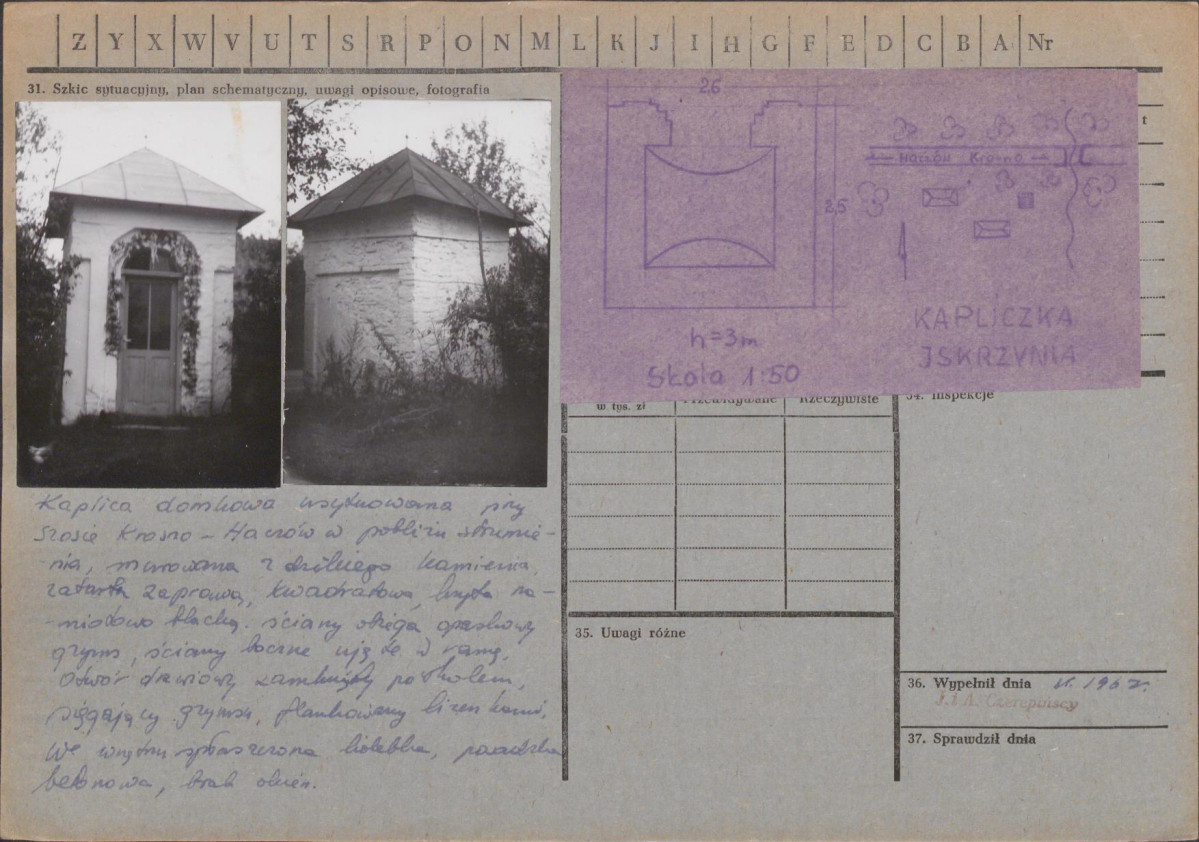 Z Y X W V U T S R P O N M L K J I H G F E D C B A Nr
31. Szkic sytuacyjny, plan schematyczny, uwagi opisowe, fotografia
t
2,6
2,5
Haczów Krosno
h=3m
Skala 1:50
KAPLICZKA
JSKRZYNIA
Kaplica domkowa usytuowana przy
szosie Krosno – Haczów w pobliżu strumie-
-nia, murowana z dzikiego kamienia,
zatarta zaprawą, kwadratowa, kryta na-
-miotowo blachą. ściany obiega opaskowy
gzyms, ściany boczne ujęte w ramę.
Otwór drzwiowy zamknięty półkolem,
sięgający gzymsu, flankowany lizenkami.
We wnętrzu spłaszczona kolebka, posadzka
betonowa, brak okien.
w tys. zł
Przewidywane
Rzeczywiste
34. Inspekcje
35. Uwagi różne
36. Wypełnił dnia
J. i A. Czerepińscy
37. Sprawdził dnia